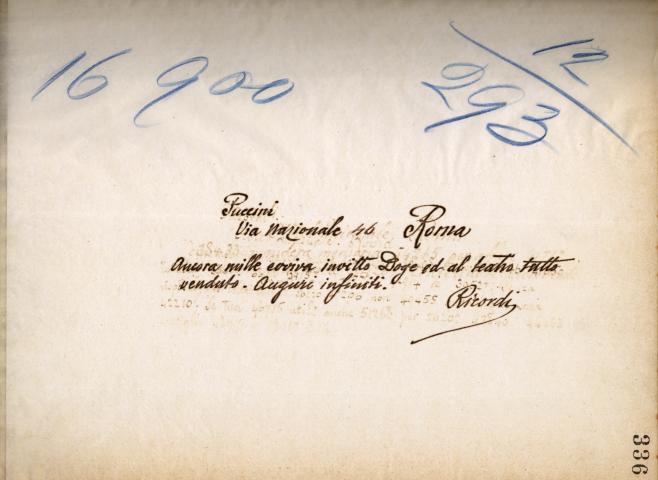 16 900
293/12
Puccini
Via Nazionale 46 Roma
Ancora mille evviva invitto Doge ed al teatro tutto
venduto. Auguri infiniti.
Ricordi
336